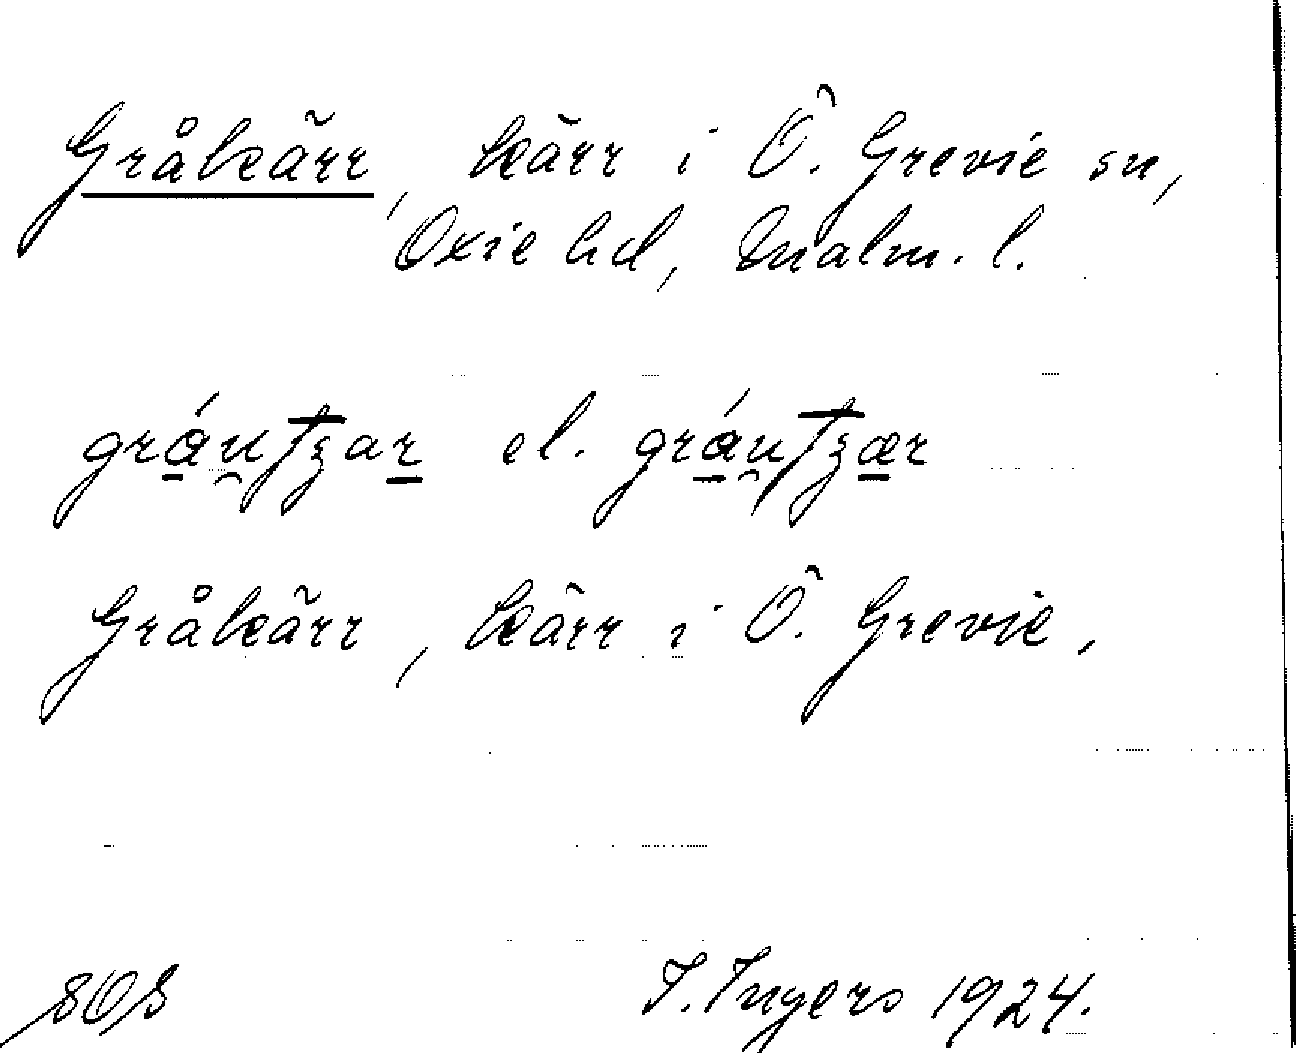 Gråkärr, kärr i Ö. Grevie sn,
Oxie hd, Malm. l.
el.
Gråkärr, kärr i Ö. Grevie.
I. Ingers 1924.